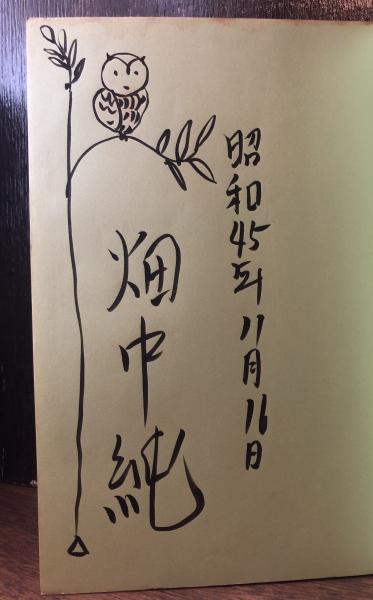 昭和45年11月16日
畑中純